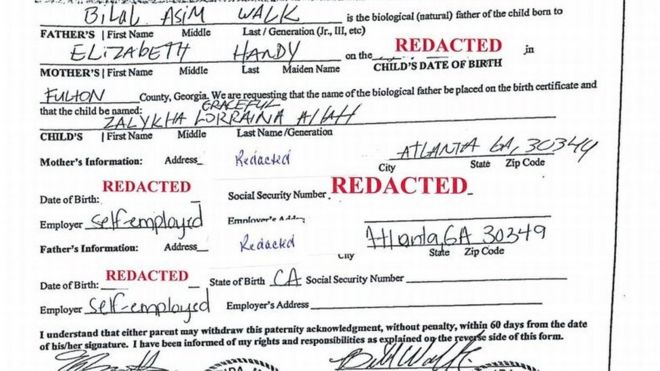 Bilal Asim WALK is the biological (natural) father of the child born to
FATHER'S | First Name Middle Last / Generation (Jr., III, etc)
ELIZABETH HANDY on the REDACTED in
MOTHER'S | First Name Middle Last Maiden Name CHILD'S DATE OF BIRTH
FULTON County, Georgia. We are requesting that the name of the biological father be placed on the birth certificate and
that the child be named: GRACEFUL
ZALYKHA LORRAINA Allah
CHILD'S | First Name Middle Last Name/Generation
Mother's Information: Address Redacted ATLANTA GA, 30344
City State Zip Code
Date of Birth: REDACTED Social Security Number REDACTED
Employer self-employed
Father's Information: Address Redacted Atlanta, GA 30349
City State Zip Code
Date of Birth: REDACTED State of Birth CA Social Security Number
Employer self-employed Employer's Address
I understand that either parent may withdraw this paternity acknowledgment, without penalty, within 60 days from the date
of his/her signature. I have been informed of my rights and responsibilities as explained on the reverse side of this form.